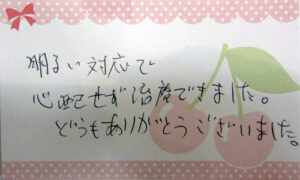 明るい対応で
心配せず治療できました。
どうもありがとうございました。